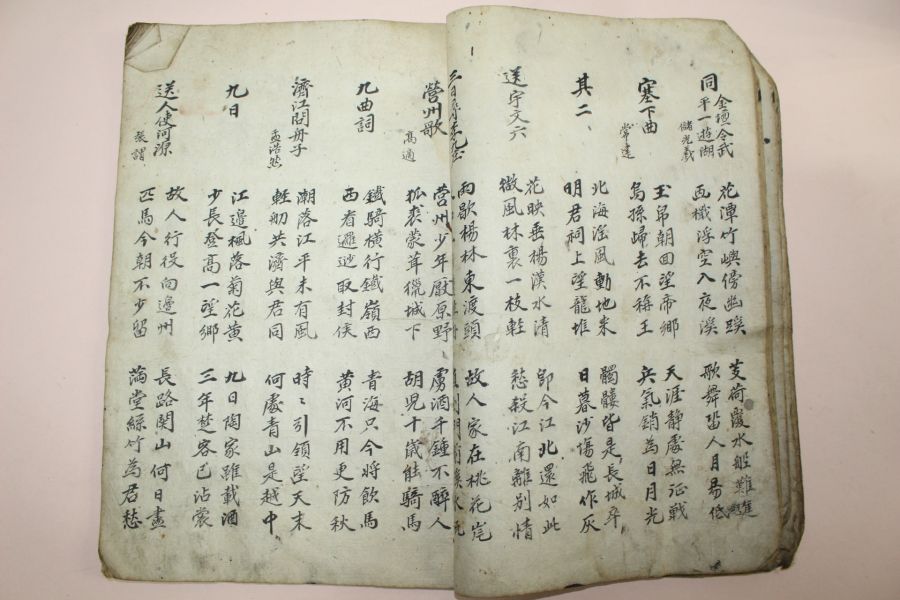 同金壇令武平一遊湖
儲光羲
花潭竹嶼傍幽蹊 芰荷覆水船難進
画檝浮空入夜溪 歌舞畱人月易低
塞下曲
常建
玉帛朝回望帝鄉 天涯静處無征戰
烏孫歸去不稱王 兵氣銷為日月光
其二
北海陰風動地来 髑髏皆是長城卒
明君祠上望龍堆 日暮沙塲飛作灰
送宇文六
花映垂楊漢水清 即今江北還如此
微風林裏一枝軽 愁殺江南離別情
三日尋李九庄
雨歇楊林東渡頭 故人家在桃花岸
營州歌
高適
營州少年厭原野 虜酒千鍾不醉人
狐裘蒙茸獵城下 胡児十歲能騎馬
九曲詞
鐵騎橫行鐵嶺西 青海只今將飲馬
西看邏逤取封侯 黃河不用更防秋
濟江問舟子
孟浩然
潮落江平未有風 時〻引領望天末
軽舠共濟與君同 何處青山是越中
九日
江邊楓落菊花黃 九日陶家雖載酒
少長登高一望鄉 三年楚客已沾裳
送人使河源
張謂
故人行役向邊州 長路関山何日盡
匹馬今朝不少留 滿堂絲竹為君愁